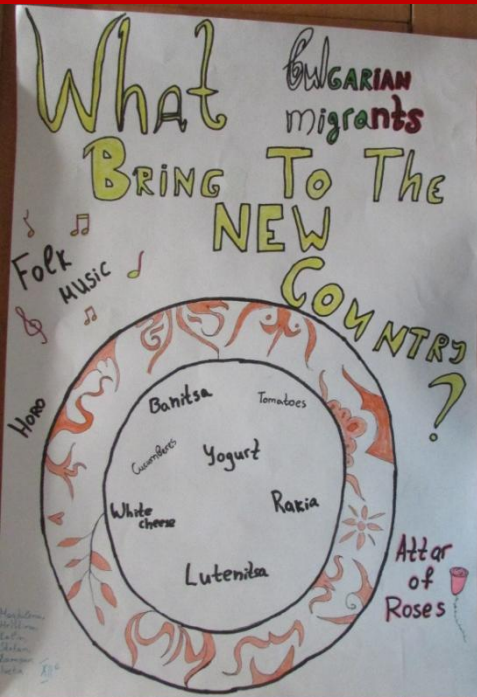 What Bulgarian
migrants
Bring To The
NEW
Country
?
Folk
music
Horo
Banitsa
Tomatoes
Cucumbers
Yogurt
White
cheese
Rakia
Lutenitsa
Attar
of
Roses